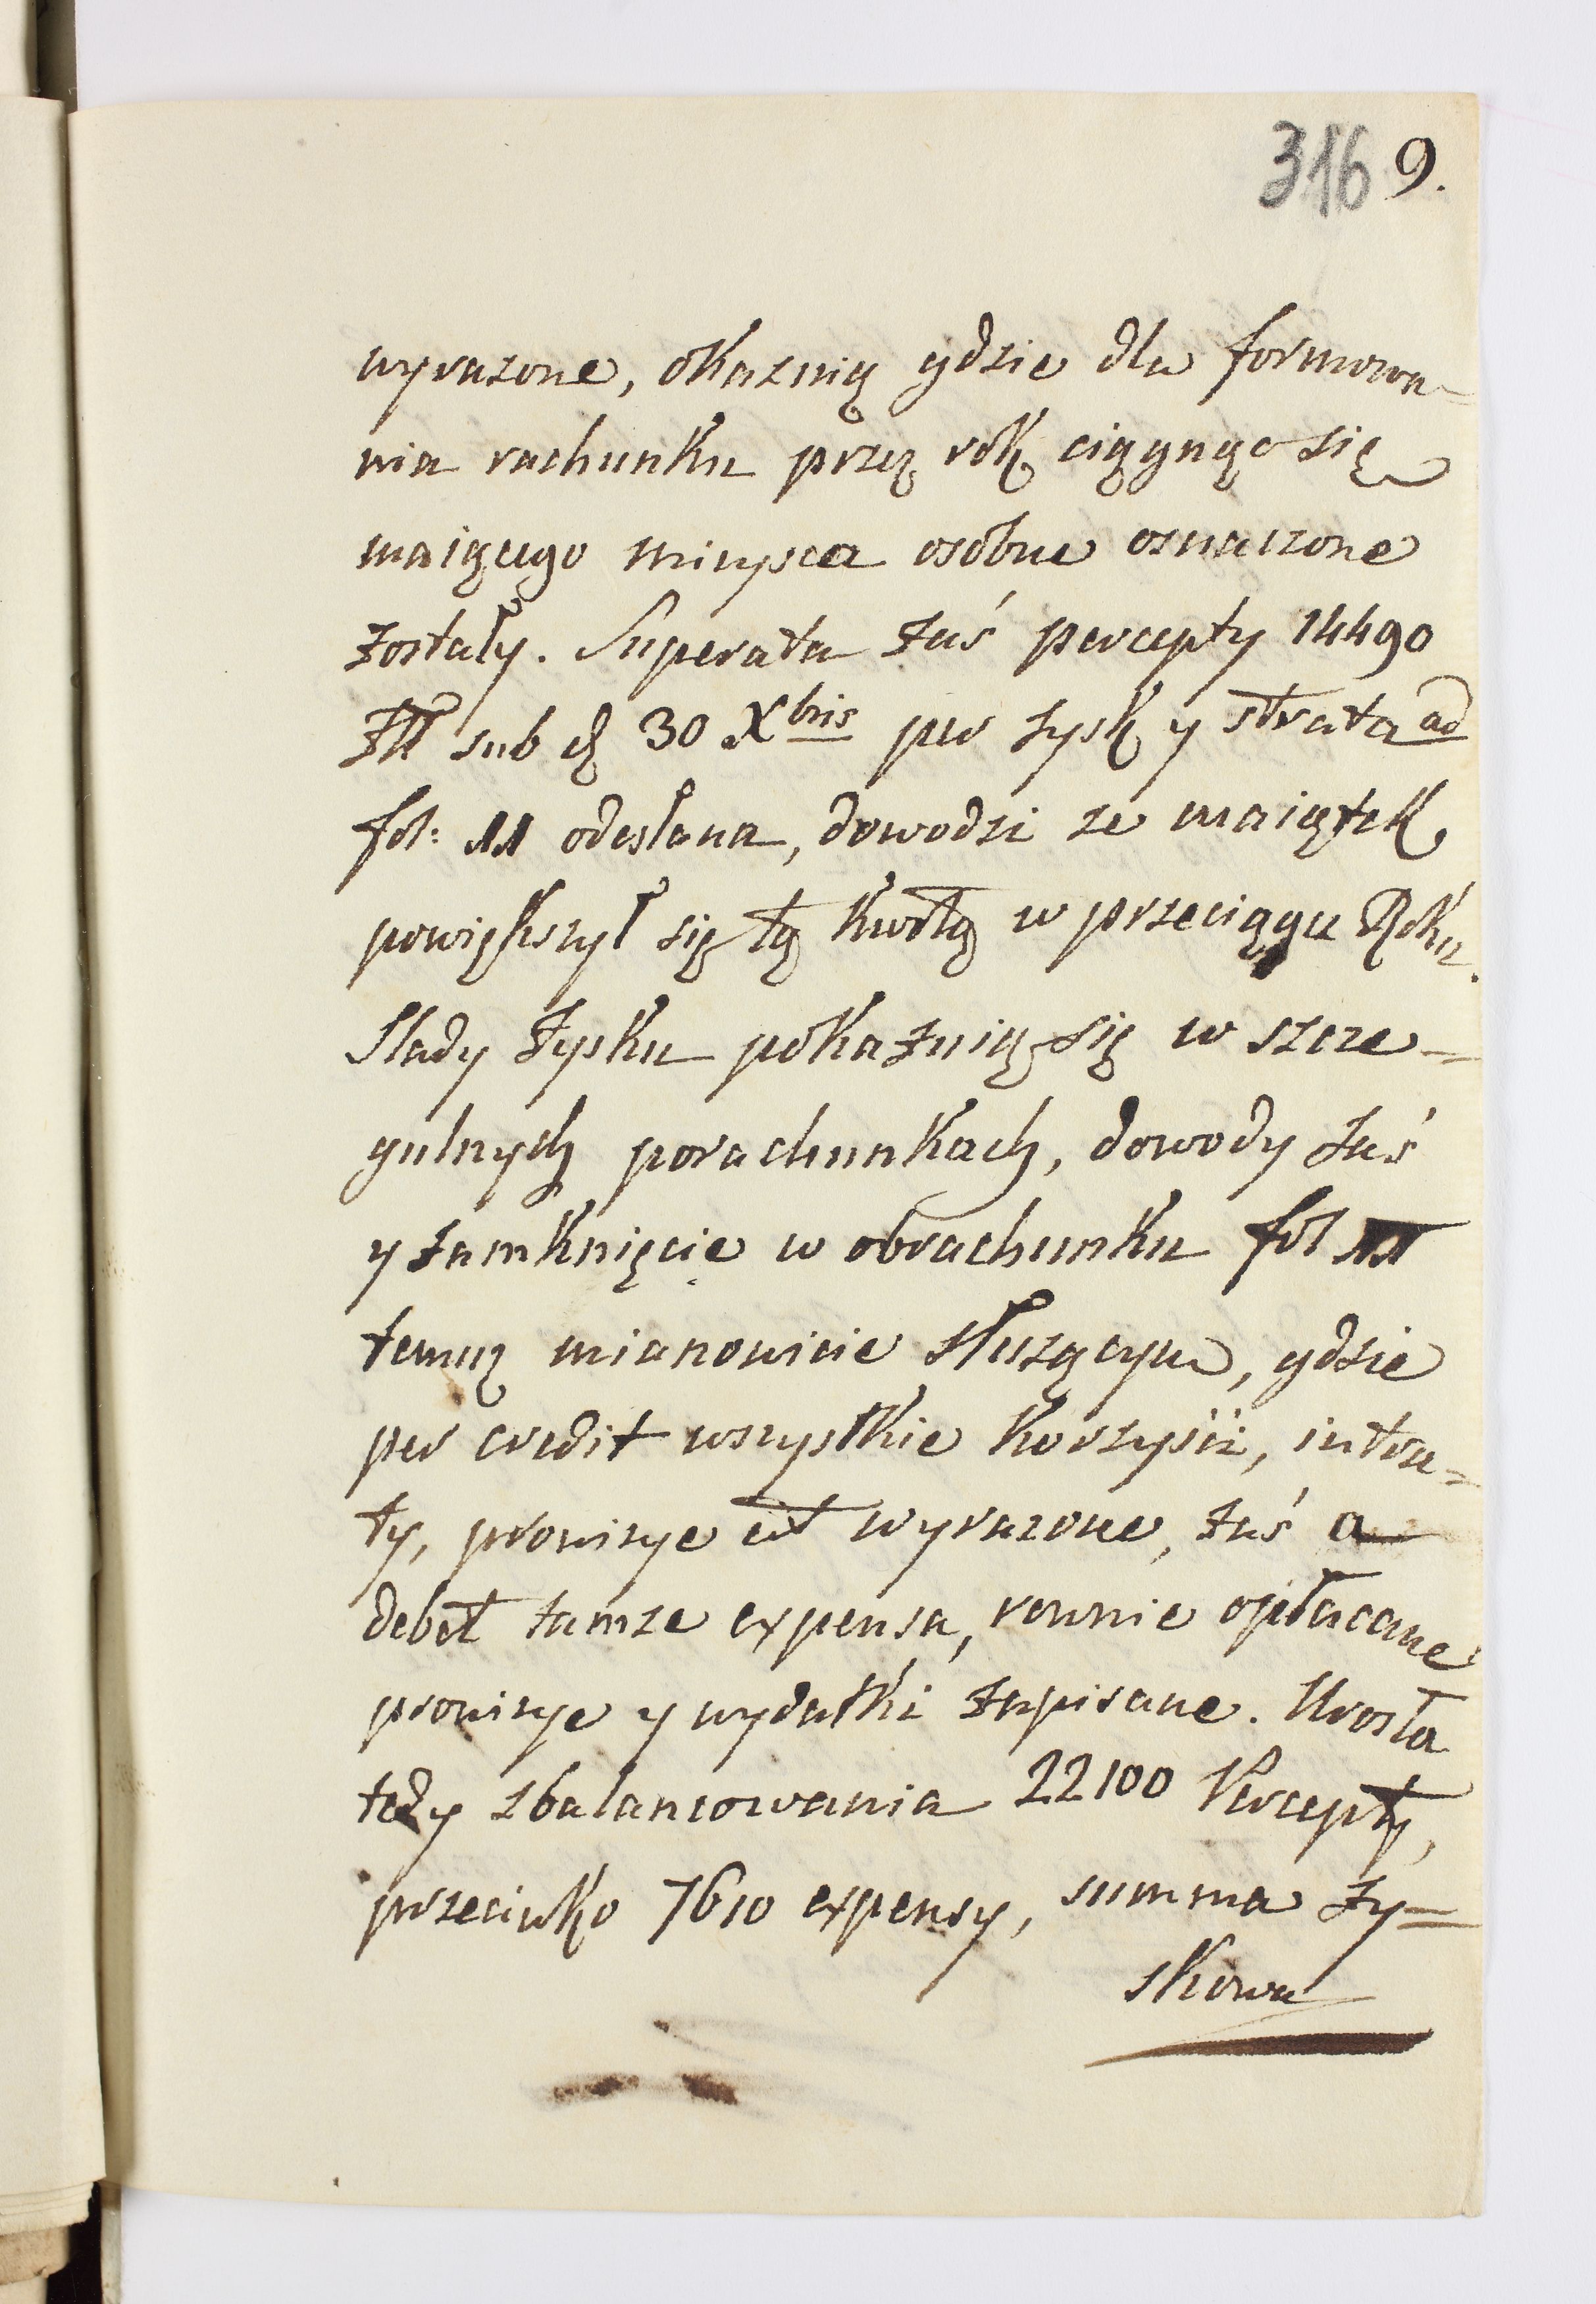 316 9.
wyrazone, okazuią gdzie dla formowa=
nia rachunku przez rok ciągnącego się
maiącego mieysca osobne oznaczone
zostały. Superata zaś percepty 14490
Zll sub d 30 Xbris per zysk y strata ad
fol: 11 odesłana, dowodzi ze maiątek
powiększył się tą kwotą w przeciągu Roku.
Slady zysku pokazuią się w szcze=
gulnych porachunkach, dowody zaś
y zamknięcie w obrachunku fol 11
temuz mianowicie słuzącym, gdzie
per credit wszystkie korzyści, intra=
ty, prowizye etc wyrazone, zaś a
debet tamze expensa, rownie opłacane
prowizye y wydatki zapisane. Urosła
tedy zbalansowania 22100 Percepty,
przeciwko 7610 expensy, summa zy=
skowa